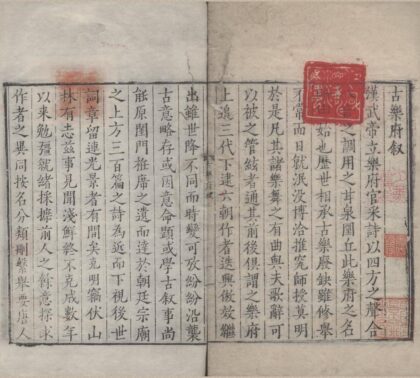 古樂府叙
漢武帝立樂府官采詩以四方之聲合
之調用之甘泉圜丘此樂府之名
始也歷世相承古樂廢缺雖修舉
不常而日就泯没博洽推究師授莫明
於是凡其諸樂舞之有曲與夫歌辭可
以被之管絃者通其前後俱謂之樂府
上追三代下逮六朝作者迭興倣效繼
出雖世降不同而時變可攷紛紛沿襲
古意略存或因意命題或學古叙事尚
能原閨門袵席之遺而達於朝廷宗廟
之上方三百篇之詩為近而下視後世
詞章留連光景者有間矣克明竊伏山
林有志兹事見聞淺鮮終不克成數年
以來勉彊就緒採摭前人之餘意探求
作者之異同按名分類刪繁舉要唐人